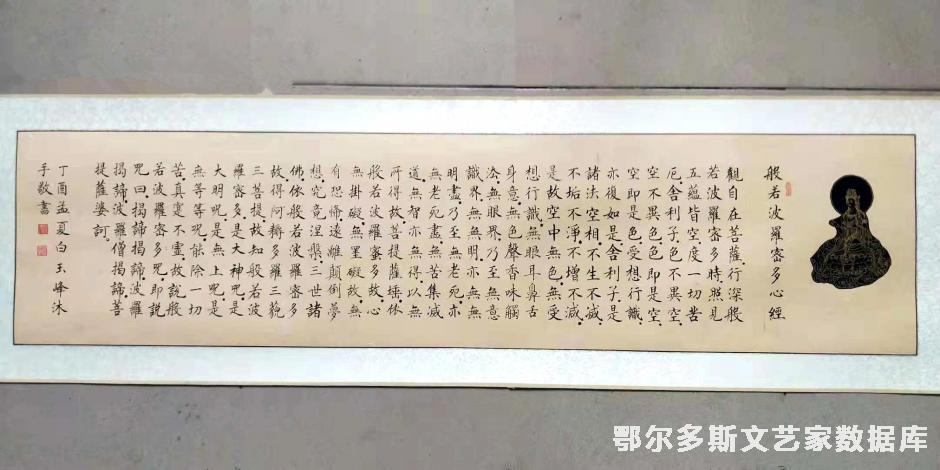 般若波羅密多心經
觀自在菩薩行深般
若波羅密多時照見
五蘊皆空度一切苦
厄舍利子色不異空
空不異色色即是空
空即是色受想行識
亦復如是舍利子是
諸法空相不生不滅
不垢不淨不增不減
是故空中無色無受
想行識無眼耳鼻舌
身意無色聲香味觸
法無眼界乃至無意
識界無無明亦無無
明盡乃至無老死亦
無老死盡無苦集滅
道無智亦無得以無
所得故菩提薩埵依
般若波羅蜜多故心
無掛礙無罣礙故無
有恐怖遠離顛倒夢
想究竟涅槃三世諸
佛依般若波羅密多
故得阿耨多羅三藐
三菩提故知般若波
羅密多是大神咒是
大明咒是無上咒是
無等等咒能除一切
苦真寔不虛故說般
若波羅密多咒即說
咒曰揭諦揭諦波羅
揭諦波羅僧揭諦菩
提薩婆訶
丁酉孟夏白玉峰沐
手敬書
鄂尔多斯文艺家数据库